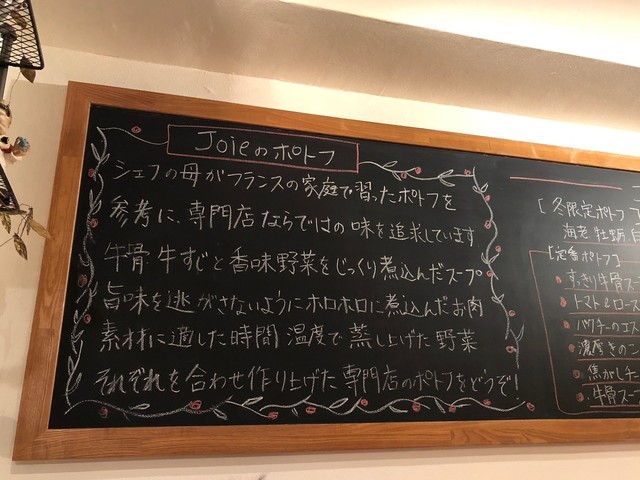 Joieのポトフ
シェフの母がフランスの家庭で習ったポトフを
参考に、専門店ならではの味を追求しています
牛骨 牛すじと香味野菜をじっくり煮込んだスープ
旨味を逃がさないようにホロホロに煮込んだお肉
素材に適した時間 温度で蒸し上げた野菜
それぞれを合わせ作り上げた専門店のポトフをどうぞ!
[冬限定ポトフ
海老 牡蛎
[定番ポトフ]
すっきり牛骨スー
トマト&ロース
パクチーの
濃厚きのこ
焦がしチー
牛骨スープ